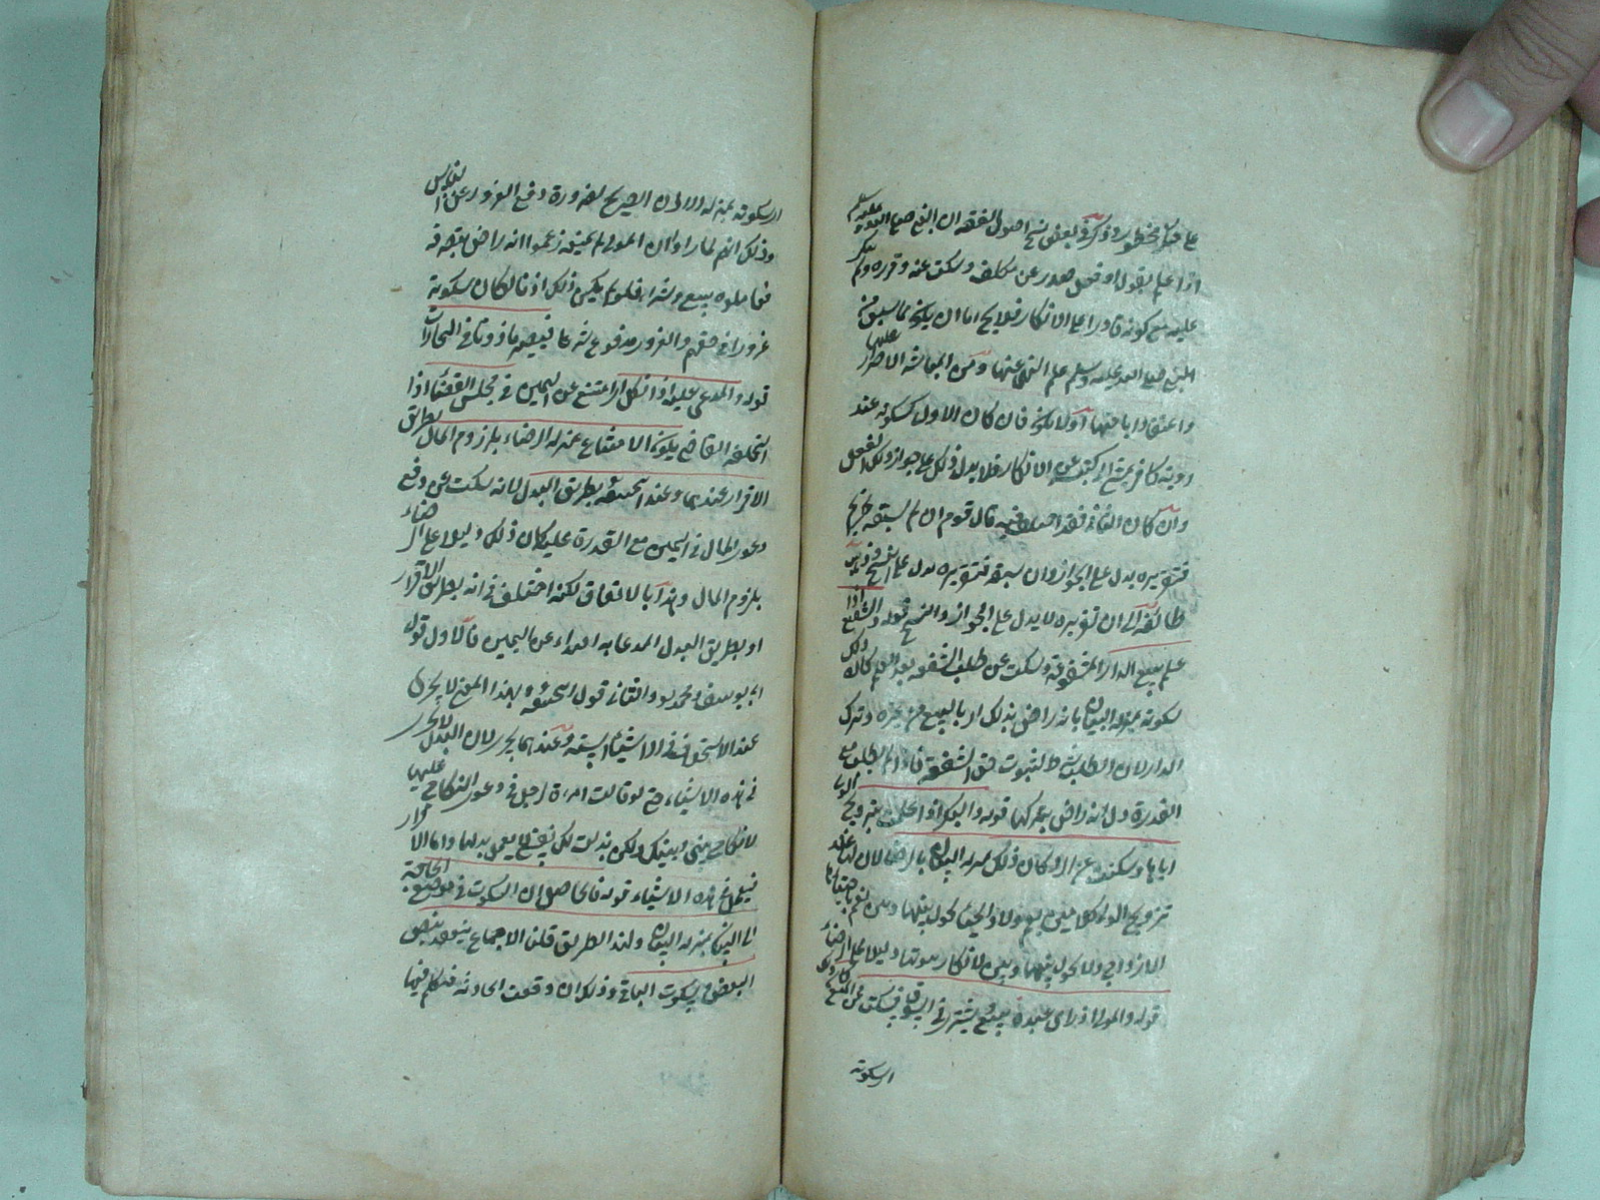 على حل محظور وذكر في بعض نسخ اصول الفقه ان النبي صلى الله عليه وسلم
اذا علم بقول او فعل صدر عن مكلف وسكت عنه وقرره ولم ينكر
عليه مع كونه قادرا على الانكار فلا يخ اما ان يكون مما سبق من
النبي صلى الله عليه وسلم علم النهي عنها ومن المباشر الاصرار عليها
واعتقاد اباحتها اولا يكون فان كان الاول كسكوته عند
روية كافر يمشي الى كنيسة عن الانكار فلا يدل ذلك على جواز ذلك الفعل
وان كان الثاني فقد اختلف فيه قال قوم ان لم يسبقه تحريم
فتقريره يدل على الجواز وان سبقه فتقريره يدل على النسخ وذهبت
طائفة الى ان تقريره لا يدل على الجواز والنسخ قوله والشفيع اذا
علم بيع الدار المشفوعة وسكت عن طلب الشفعة بعد العلم كان ذلك
سكوته بمنزلة البيان بانه راض بذلك اي بالبيع من غيره وترك
الدار لان الطلب شرط لثبوت حق الشفعة فاذا لم يطلب مع
القدرة دل انه راض بتركها قوله والبكر اذا علمت بتزويج الولي
اياها وسكتت عن الرد كان ذلك بمنزلة البيان بالرضا لان لها عند
تزويج الولي كلامين نعم ولا والحياء يحول بينها وبين نعم
الازواج ولا يحول بينها وبين لا فكان سكوتها دليلا على الرضاء
قوله والمولى اذا راى عبده يبيع ويشتري في السوق فسكت عن المنع كان ذلك
اي سكوته
اي سكوته بمنزلة الاذن الصريح لضرورة دفع الغرور عن الناس
وذلك انهم لما راوا ان المولى لم يمنعه زعموا انه راض بتصرفه
فعاملوه ببيع وشراء فلو لم يكن ذلك اذنا لكان سكوته
غرورا في حقهم والغرور مدفوع شرعا فيصير ماذونا في التجارات
قوله والمدعى عليه اذا نكل اي امتنع عن اليمين في مجلس القضاء اذا
استحلفه القاضي يكون الامتناع بمنزلة الرضاء بلزوم المال بطريق
الاقرار عندهما وعند ابي حنيفة بطريق البدل لانه سكت عن دفع
دعوى المال في اليمين مع القدرة عليه كان ذلك دليلا على الرضاء
بلزوم المال وهذا بالاتفاق لكنه اختلف في انه بطريق الاقرار
او بطريق البدل المدعا به الفداء عن اليمين فالاول قول
ابي يوسف ومحمد والثاني قول ابي حنيفة وبهذا المعنى لا يجري
عنده الاستحلاف في الاشياء الستة وعندهما يجري لان البدل لا يجري
في هذه الاشياء حتى لو قالت امرءة لرجل في دعوى النكاح عليها
لا نكاح بيني وبينك ولكن بذلت لك نفسي لا يعمل بذلها واما الاقرار
فيعمل في هذه الاشياء قوله فالحاصل ان السكوت في موضع الحاجة
الى البيان بمنزلة البيان ولهذا الطريق قلنا الاجماع ينعقد بنص
البعض وسكوت الباقي وذلك ان وقعت الحادثة فتكلم فيها